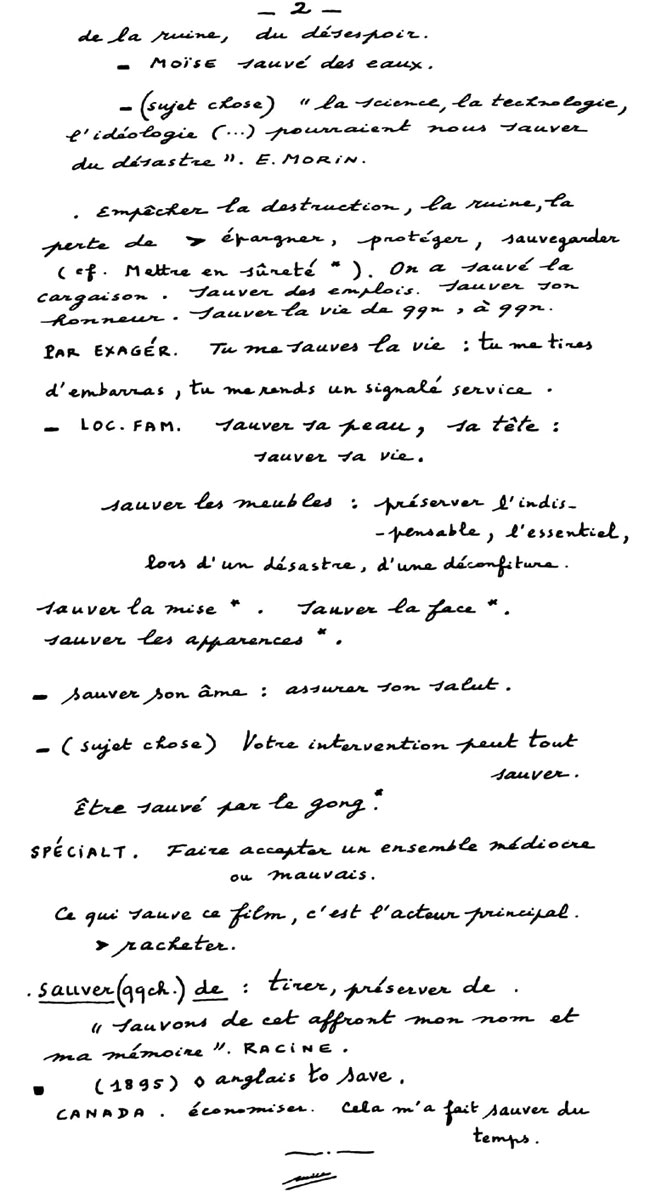 — 2 —
de la ruine, du désespoir.
– MOÏSE sauvé des eaux.
– (sujet chose) " la science, la technologie,
l'idéologie (...) pourraient nous sauver
du désastre ". E. MORIN.
. Empêcher la destruction, la ruine, la
perte de > épargner, protéger, sauvegarder
( cf. Mettre en sûreté * ). On a sauvé la
cargaison . Sauver des emplois. Sauver son
honneur. Sauver la vie de qqn , à qqn.
PAR EXAGÉR. Tu me sauves la vie : tu me tires
d'embarras , tu me rends un signalé service .
– LOC. FAM. sauver sa peau , sa tête :
sauver sa vie.
sauver les meubles : préserver l'indis-
-pensable, l'essentiel,
lors d'un désastre, d'une déconfiture.
sauver la mise * . Sauver la face *.
sauver les apparences * .
– sauver son âme : assurer son salut .
– ( sujet chose ) Votre intervention peut tout
sauver.
Être sauvé par le gong.*
SPÉCIALT. Faire accepter un ensemble médiocre
ou mauvais.
Ce qui sauve ce film, c'est l'acteur principal.
> racheter.
. sauver (qqch.) de : tirer, préserver de .
" Sauvons de cet affront mon nom et
ma mémoire ". RACINE .
▪ (1895) ◊ anglais to save .
CANADA . économiser. Cela m'a fait sauver du
temps.